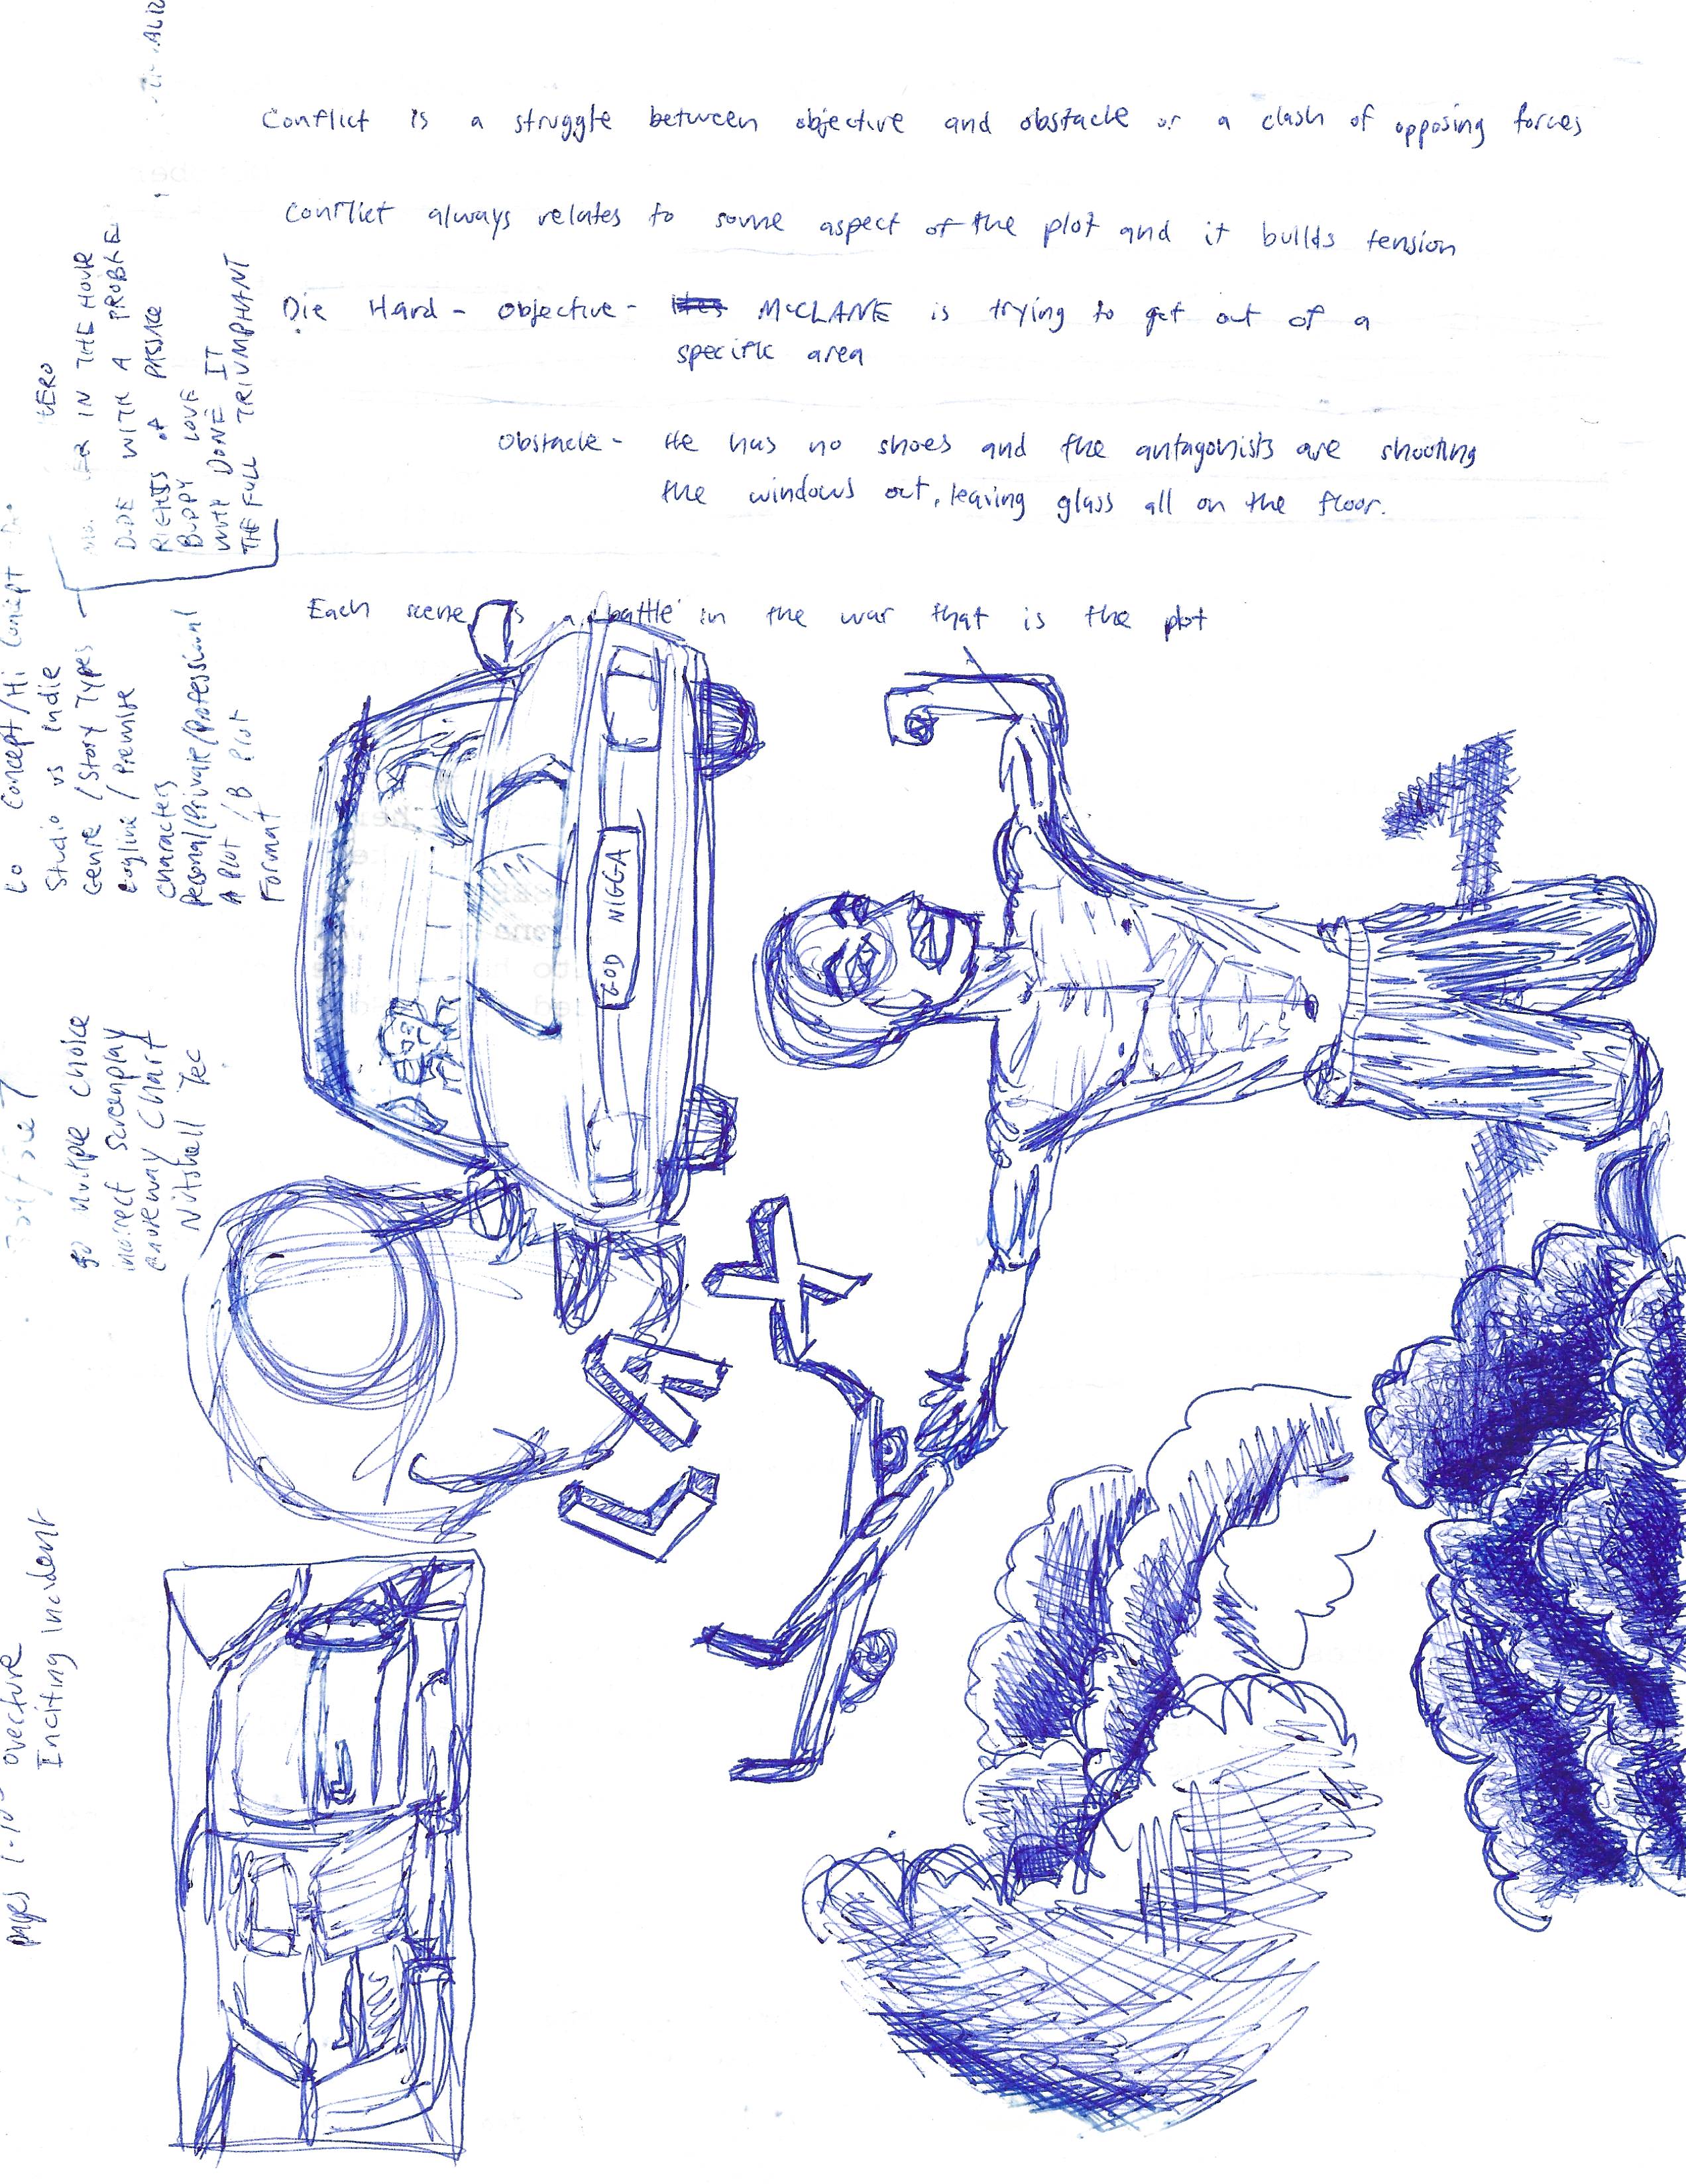 pages 1-10 overture
Inciting Incident
50 Multiple Choice
incorrect Screenplay
Causeway Chart
Nutshell Tec
Lo Concept/Hi Concept
Studio vs Indie
Genre / Story Types
Logline / Premise
Characters
Personal/Private/Professional
A Plot / B Plot
Format
IN THE HOUSE
DUDE WITH A PROBLE
RIGHTS OF PASSAGE
BUPPY LOVE
WHY DONE IT
THE FULL TRIUMPHANT
Conflict is a struggle between objective and obstacle or a clash of opposing forces
Conflict always relates to some aspect of the plot and it builds tension
Die Hard - objective - McCLANE is trying to get out of a
specific area
obstacle - He has no shoes and the antagonists are shooting
the windows out, leaving glass all on the floor.
Each scene is a battle in the war that is the plot
GOD NIGGA
LA
X